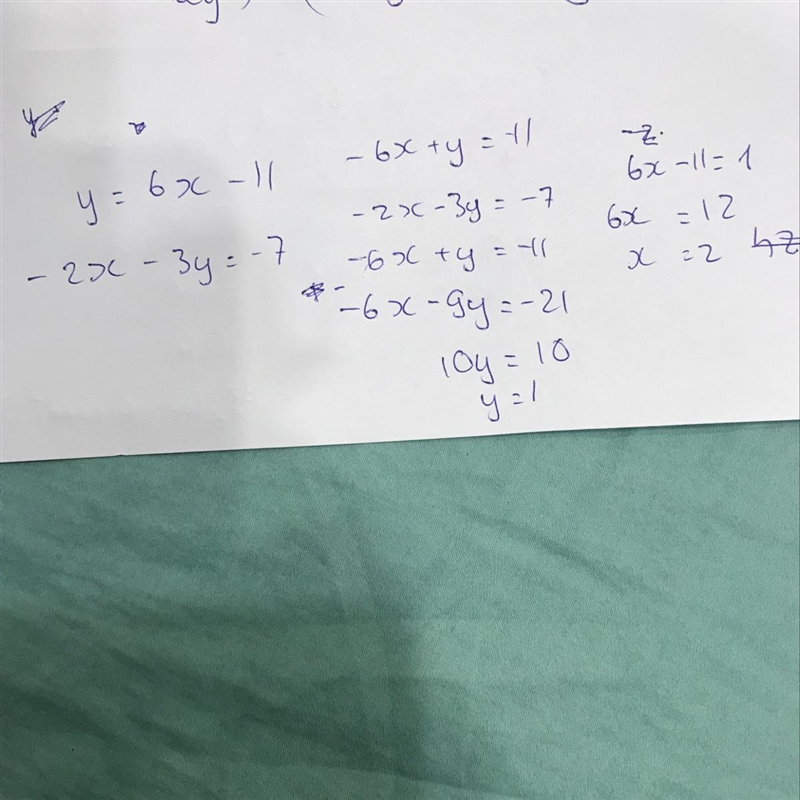 y = 6x - 11
- 2x - 3y = -7
- 6x + y = -11
- 2x - 3y = -7
- 6x + y = -11
- 6x - 9y = -21
10y = 10
y = 1
6x - 11 = 1
6x = 12
x = 2